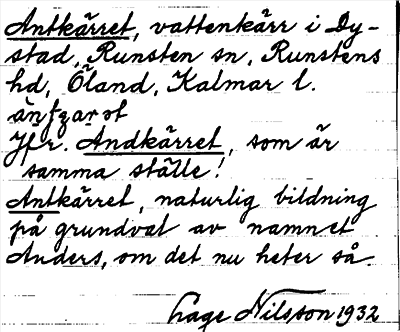 Antkärret, vattenkärr i Dy-
stad, Runsten sn, Runstens
hd, Öland, Kalmar l.
Jfr. Andkärret, som är
samma ställe!
Antkärret, naturlig bildning
på grundval av namnet
Anders, om det nu heter så.
Lage Nilsson 1932